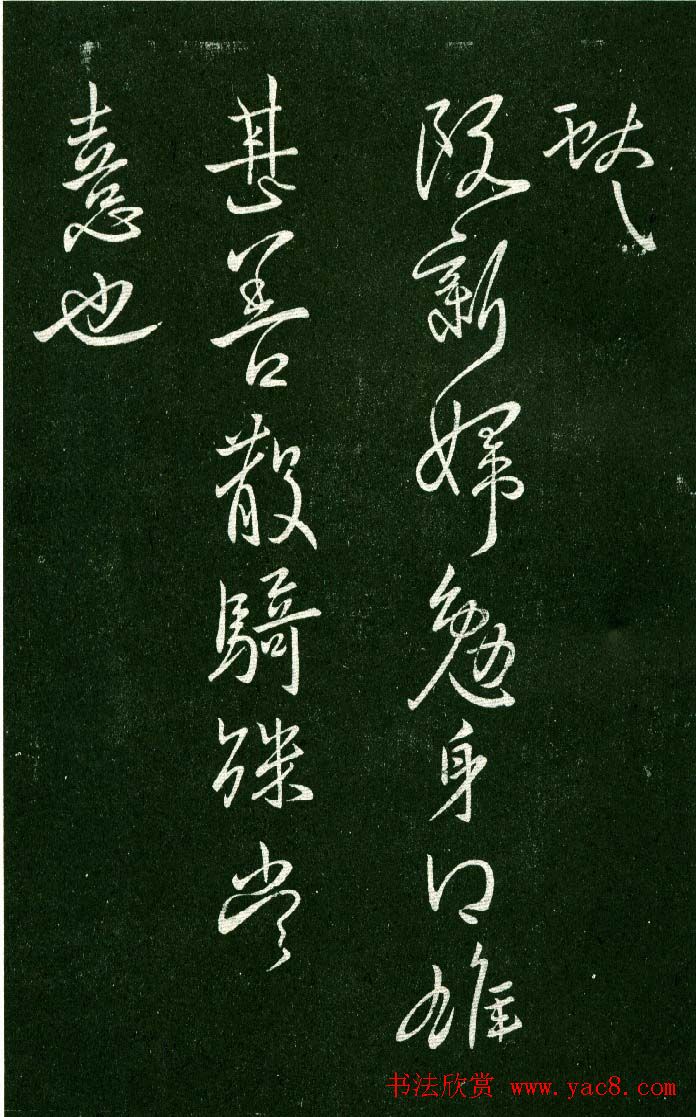 獻之
阮新婦勉身得雄
甚善散騎殊當
憙也
书法欣赏 www.yac8.com